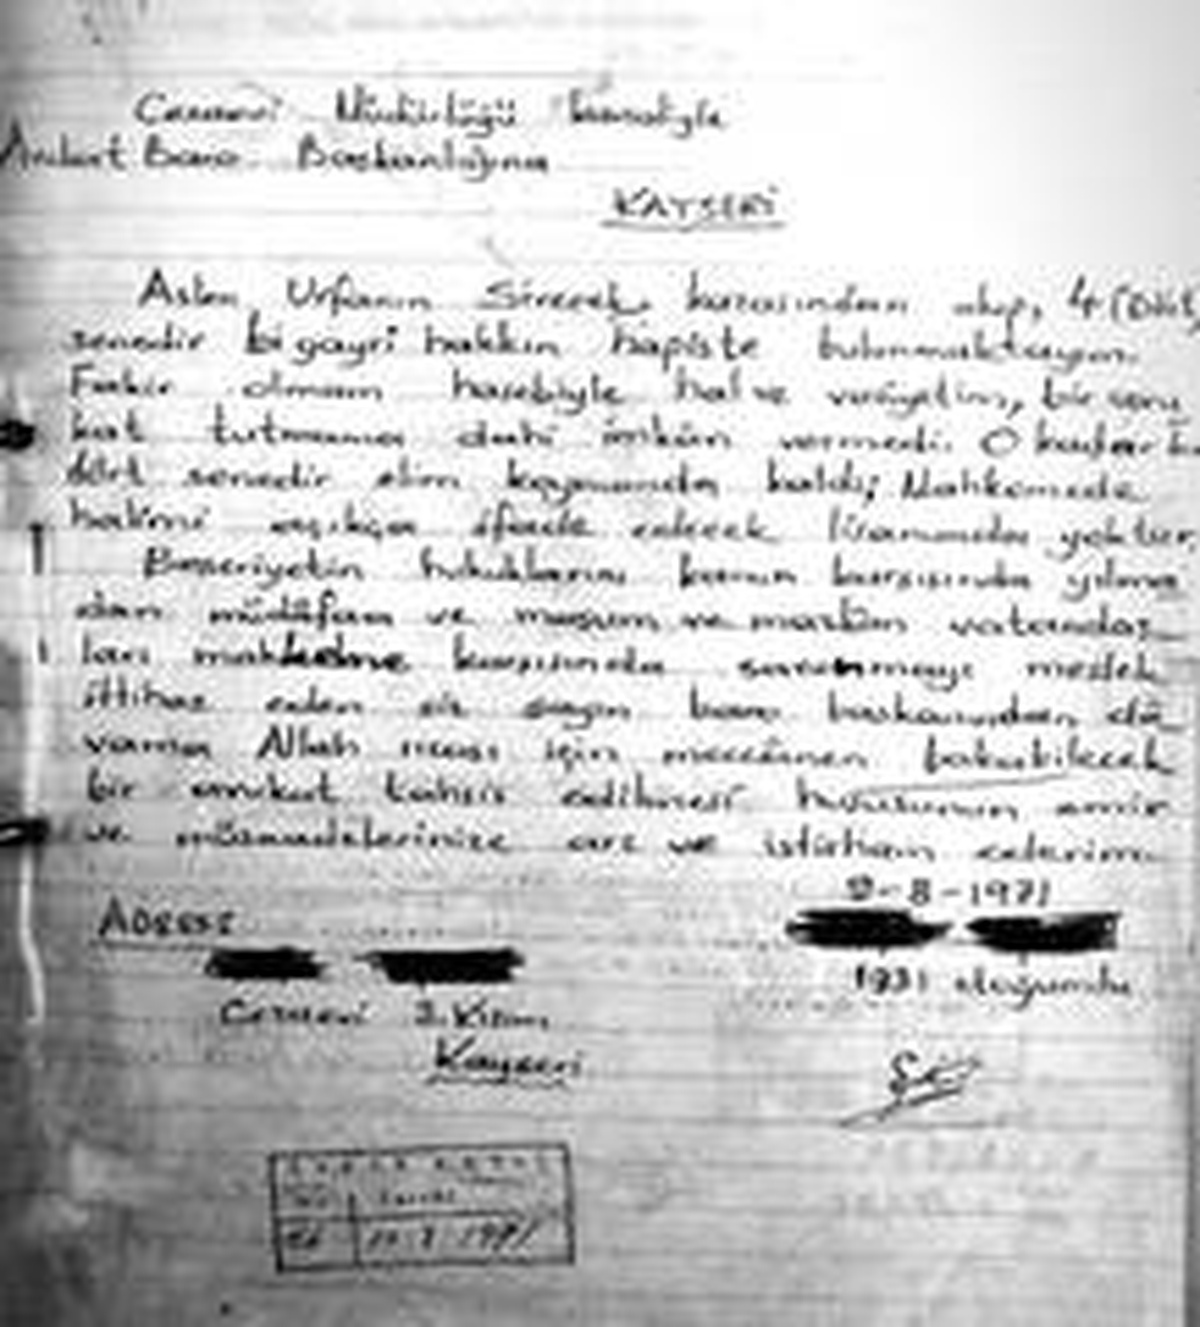 Cezaevi Müdürlüğü kanaliyle
Avukat Baro Başkanlığına
KAYSERİ
Aslen Urfanın Siverek kazasından olup, 4 (Dört)
senedir bigayri hakkın hapiste bulunmaktayım.
Fakir olmam hasebiyle hal ve vaziyetim, bir avu
kat tutmama dahi imkân vermedi. O kadar ki
dört senedir elim koynumda kaldı; Mahkemede
halimi açıkça ifade edecek lisanımda yoktur.
Beşeriyetin hukuklarını kanun karşısında yılma
dan müdâfaa ve masum ve mazlûm vatandaş
ları mahkeme karşısında savunmayı meslek
ittihaz eden siz sayın baro başkanından dâ
vama Allah rızası için meccânen bakabilecek
bir avukat tahsis edilmesi hususunun emir
ve müsaadelerinize arz ve istirham ederim.
9-8-1971
ADRESİ
1931 doğumlu
Cezaevi 3. Kısım
Kayseri
1971